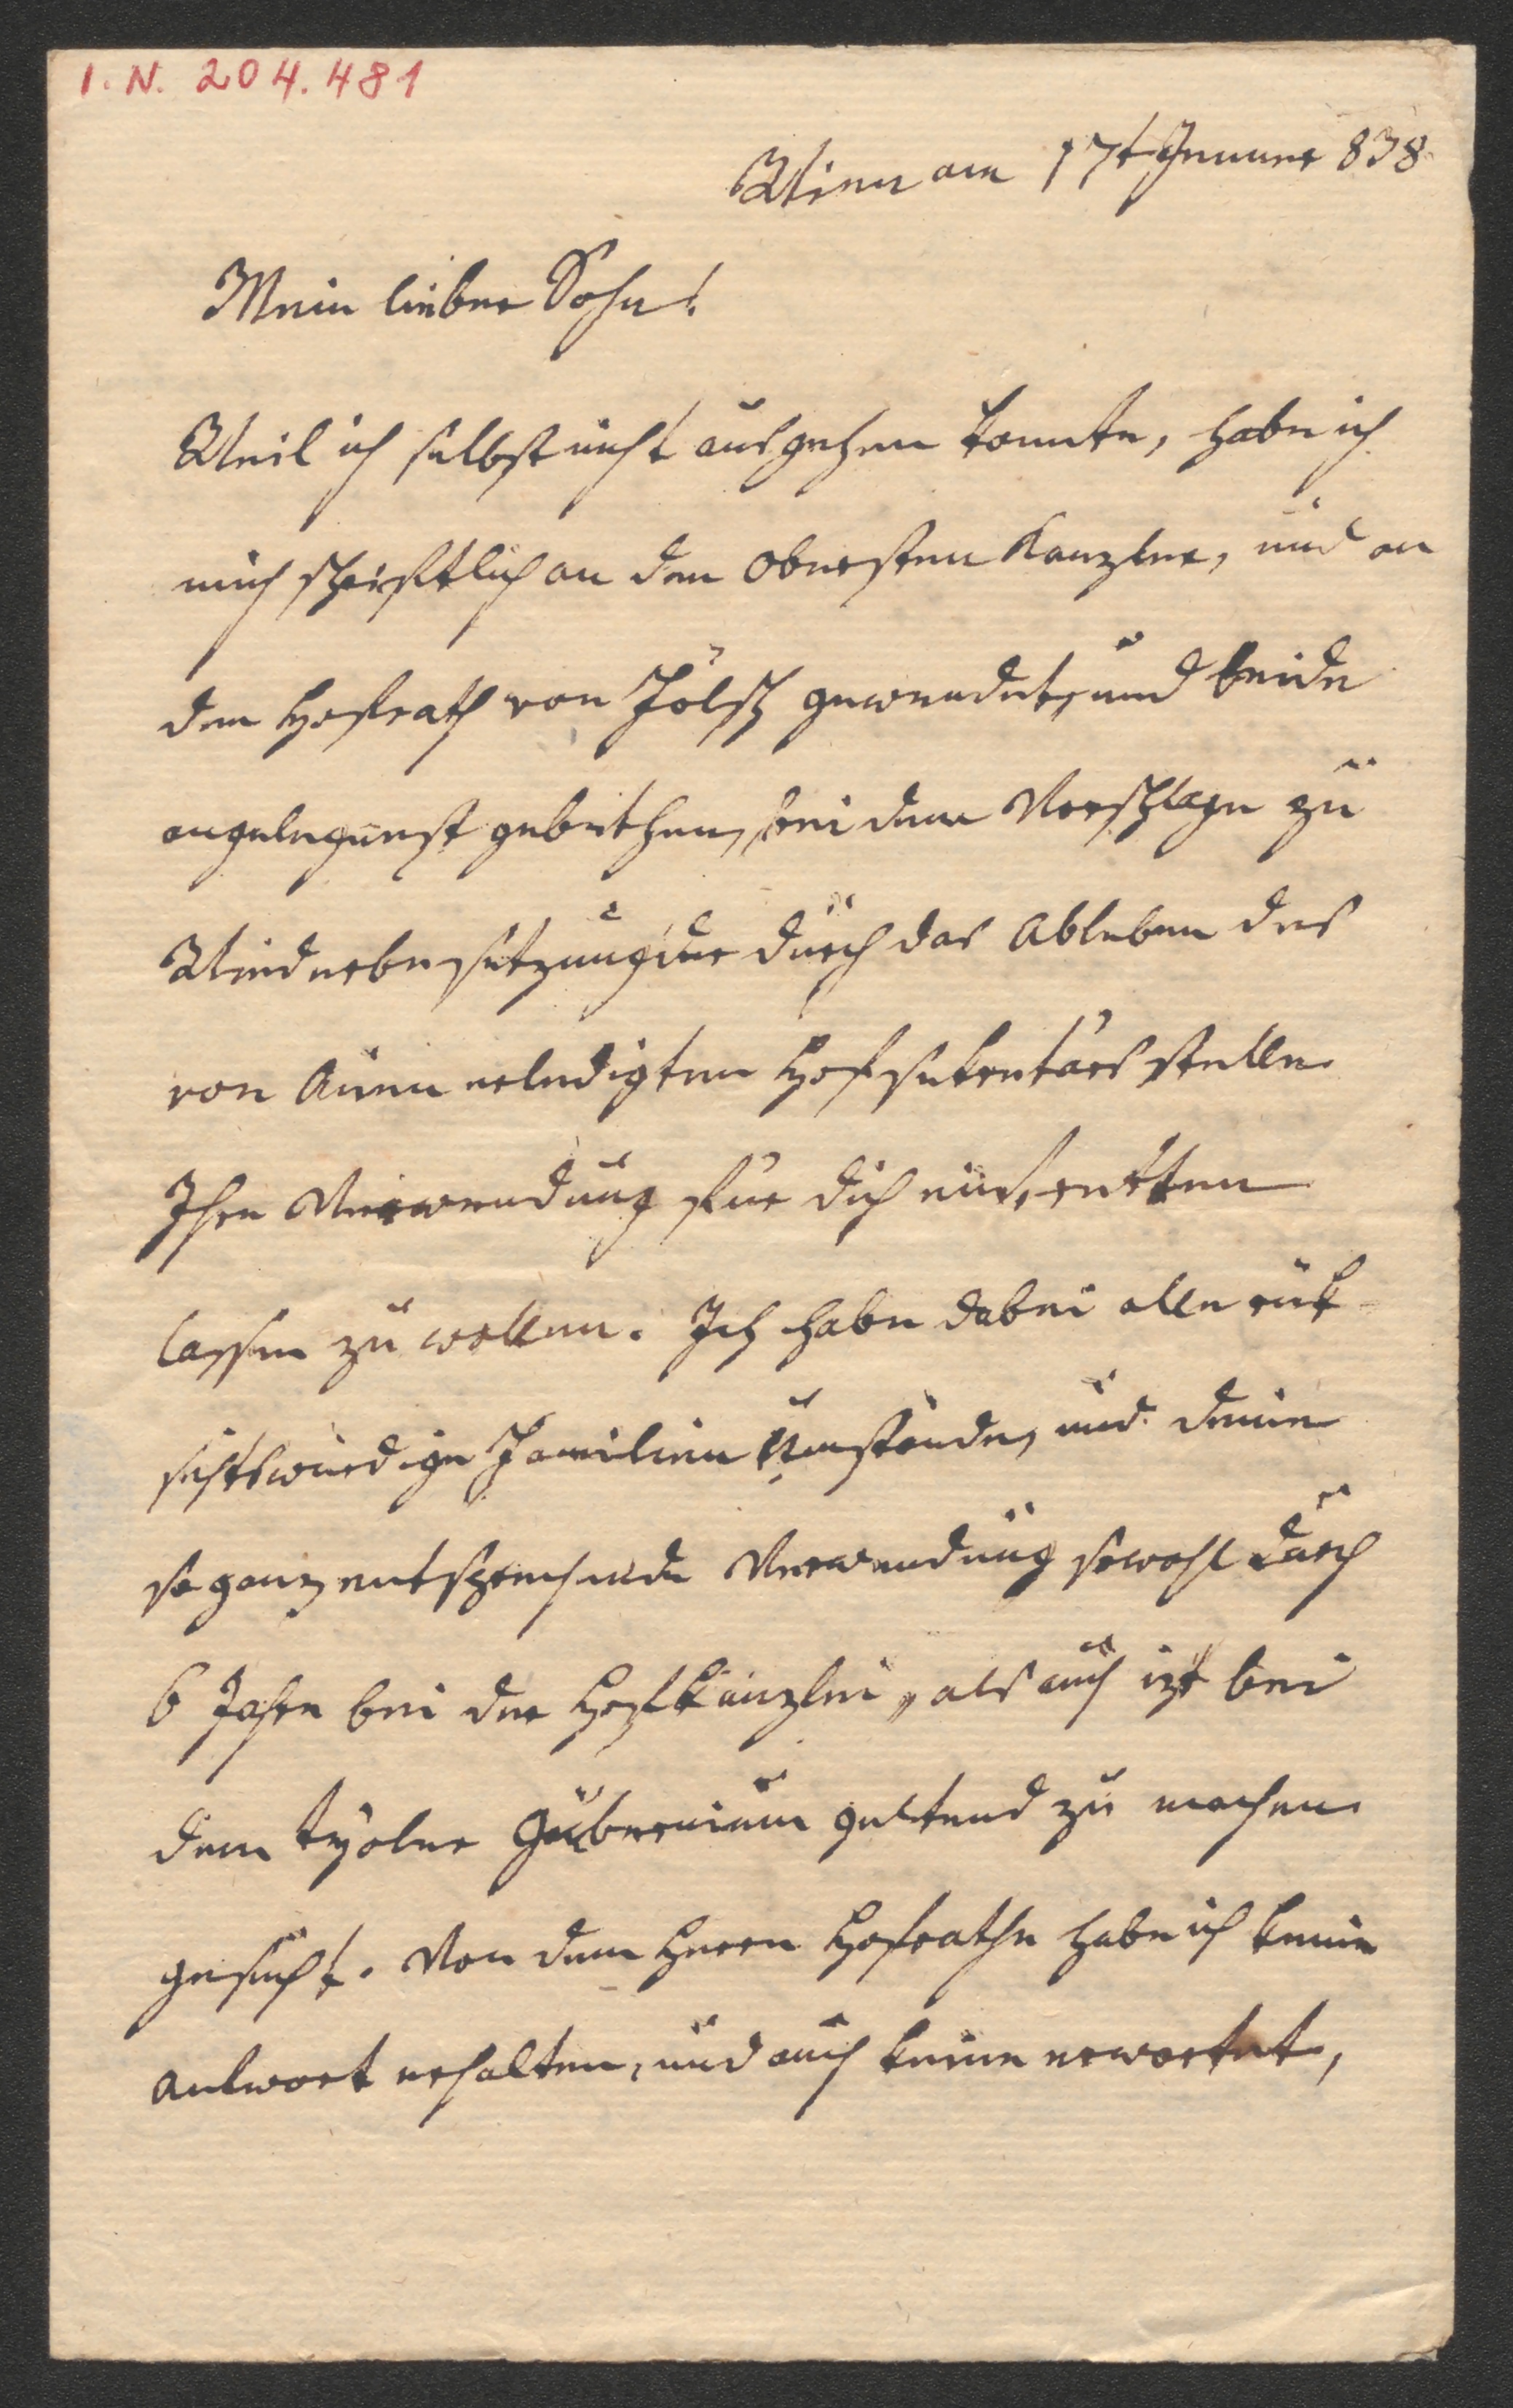 I. N. 204.481
Wien am 17t Januar 838.
Mein lieber Sohn!
Weil ich selbst nicht ausgehen konnte, habe ich
mich schriftlich an den obersten Kanzler, und an
den Hofrath von gewendet, und beide
angelegenst gebethen, bei dem Vorschlage zu
Wiederbesetzung der durch das Ableben des
von erledigten Hofsekretärsstelle
Ihre Verwendung für dich eintretten
lassen zu wollen. Ich habe dabei alle rük-
sichtswürdige Familien Umstände, und deine
so ganz entsprechende Verwendung sowohl durch
6 Jahre bei der Hofkanzlei, als auch izt bei
dem tyroler Gubernium geltend zu machen
gesucht. Von dem Herrn Hofrathe habe ich keine
Antwort erhalten, und auch keine erwartet,